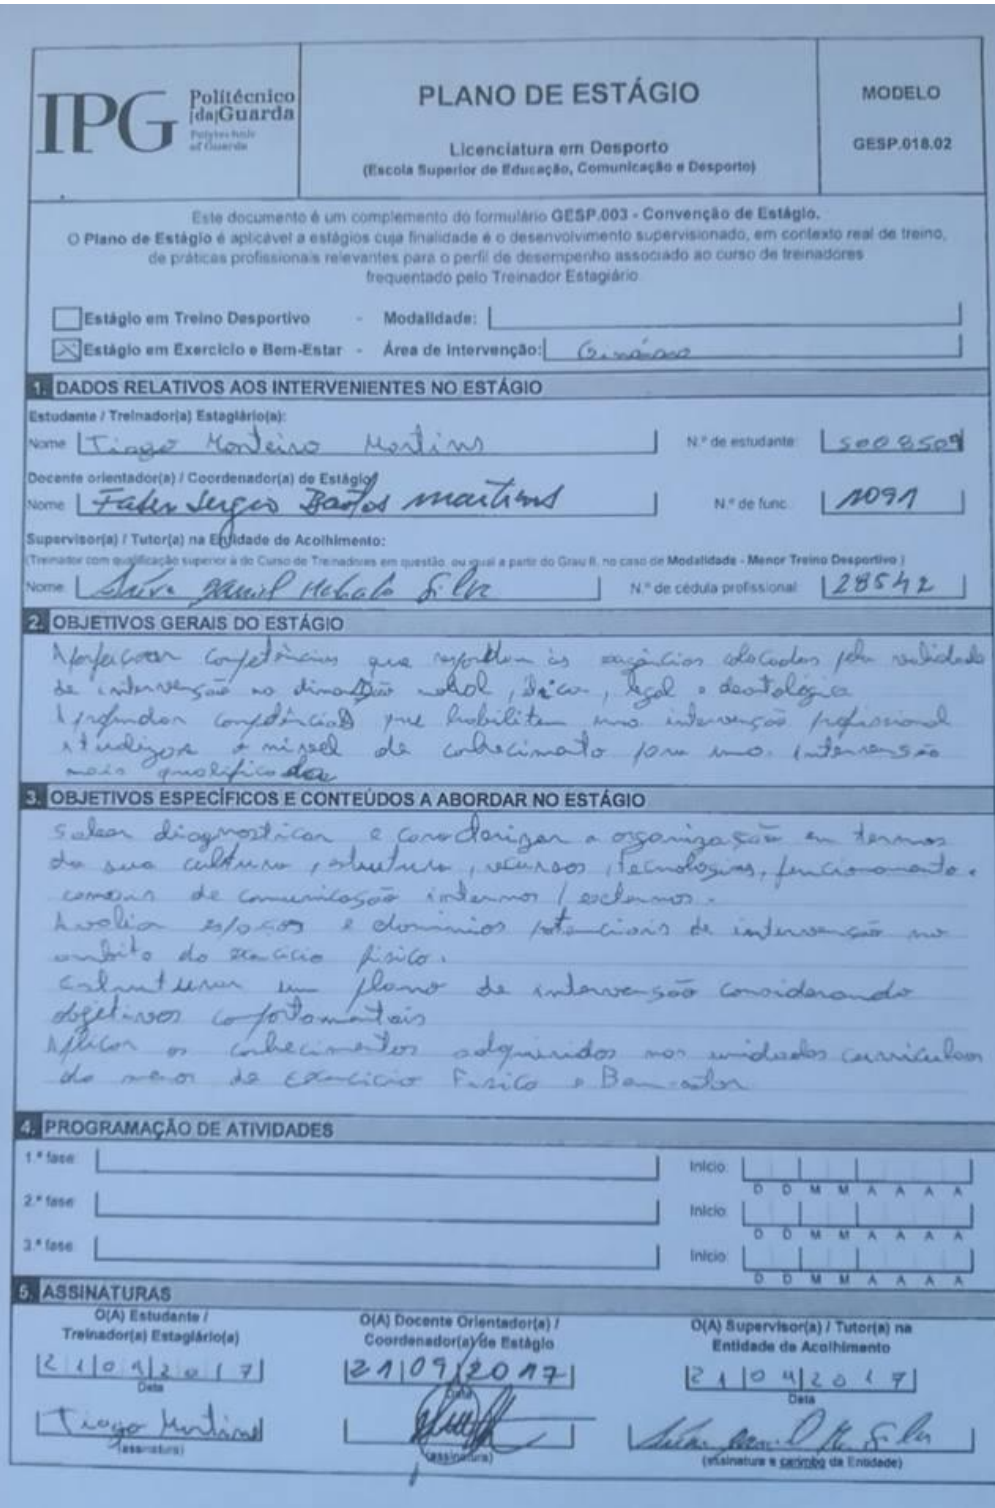 IPG
Politécnico
|da|Guarda
Polytechnic
of Guarda
PLANO DE ESTÁGIO
Licenciatura em Desporto
(Escola Superior de Educação, Comunicação e Desporto)
MODELO
GESP.018.02
Este documento é um complemento do formulário GESP.003 - Convenção de Estágio.
O Plano de Estágio é aplicável a estágios cuja finalidade é o desenvolvimento supervisionado, em contexto real de treino,
de práticas profissionais relevantes para o perfil de desempenho associado ao curso de treinadores
frequentado pelo Treinador Estagiário.
Estágio em Treino Desportivo - Modalidade:
Estágio em Exercício e Bem-Estar - Área de Intervenção: Ginásio
1. DADOS RELATIVOS AOS INTERVENIENTES NO ESTÁGIO
Estudante / Treinador(a) Estagiário(a):
Nome Tiago Monteiro Martins N.º de estudante: 5008509
Docente orientador(a) / Coordenador(a) de Estágio
Nome Sergio Bastos martins N.º de func. 1091
Supervisor(a) / Tutor(a) na Entidade de Acolhimento:
(Treinador com qualificação superior à do Curso de Treinadores em questão, ou igual a partir do Grau II, no caso de Modalidade - Menor Treino Desportivo.)
Nome: Daniel Silva N.º de cédula profissional: 28542
2. OBJETIVOS GERAIS DO ESTÁGIO
competências que respondam às exigências colocadas pela realidade
de intervenção legal e deontológica
Aprofundar competências que habilitem uma intervenção profissional
nível de conhecimento para uma intervensão
mais qualificada
3. OBJETIVOS ESPECÍFICOS E CONTEÚDOS A ABORDAR NO ESTÁGIO
Saber diagnosticar e caracterizar a organização em termos
da sua cultura, estrutura, recursos, tecnologias, funcionamento e
de comunicação internos / externos.
Avaliar espaços e domínios potenciais de intervenção no
ambito do exercício fisico.
Estruturar um plano de intervenção considerando
objetivos comportamentais
Aplicar os conhecimentos adquiridos nas unidades curriculares
de exercício Fisico e Bem-estar
4. PROGRAMAÇÃO DE ATIVIDADES
1.ª fase: Início:
D D M M A A A A
2.ª fase: Início:
D D M M A A A A
3.ª fase: Início:
D D M M A A A A
5. ASSINATURAS
O(A) Estudante /
Treinador(a) Estagiário(a)
21 09 2017
Data
Tiago Martins
(assinatura)
O(A) Docente Orientador(a) /
Coordenador(a) de Estágio
21 09 2017
Data
(assinatura)
O(A) Supervisor(a) / Tutor(a) na
Entidade de Acolhimento
21 09 2017
Data
Silva
(assinatura e carimbo da Entidade)